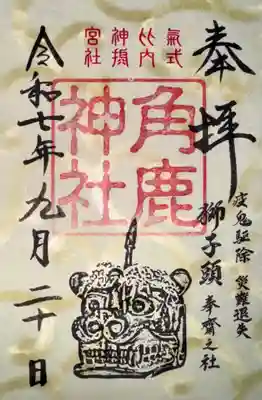 奉拝
疫鬼駆除 災難退失
獅子頭 奉齋之社
氣比神宮
式内摂社
角鹿神社
令和七年九月二十日